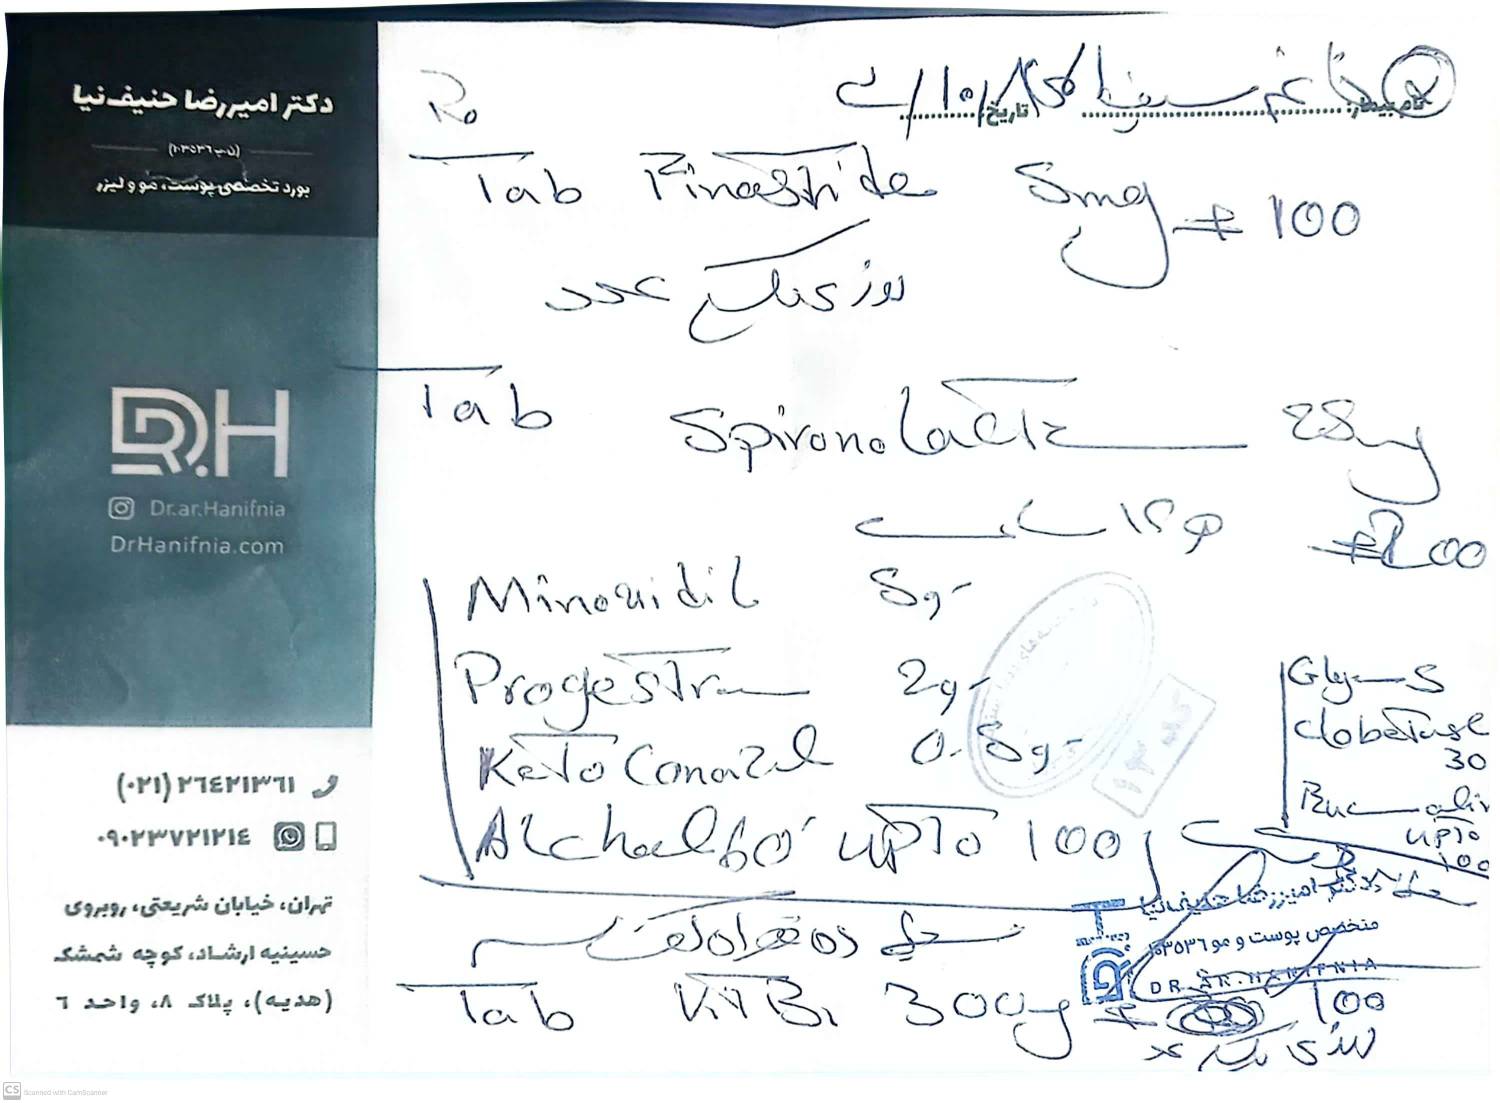 دکتر امیررضا حنیف‌نیا
(ن.پ ۱۰۳۵۳۶)
بورد تخصصی پوست، مو و لیزر
DR.H
Dr.ar.Hanifnia
DrHanifnia.com
(۰۲۱) ۲۶۴۲۱۳۶۱
۰۹۰۲۳۷۲۱۲۱۴
تهران، خیابان شریعتی، روبروی
حسینیه ارشاد، کوچه شمشک
(هدیه)، پلاک ۸، واحد ۶
نام بیمار:
تاریخ:
Tab Finastride 5mg # 100
روزی یک عدد
Tab Spironolact 25mg
# 100
Minoxidil 5g
Progestr 2g
Ketoconazol 0.5g
Alchoel 60° upTo 100
Clobetasol
30
upTo
100
دکتر امیررضا حنیف‌نیا
متخصص پوست و مو ۱۰۳۵۳۶
DR. AR. HANIFNIA
Tab Vit B1 300mg # 100
روزی یک عدد
CS Scanned with CamScanner